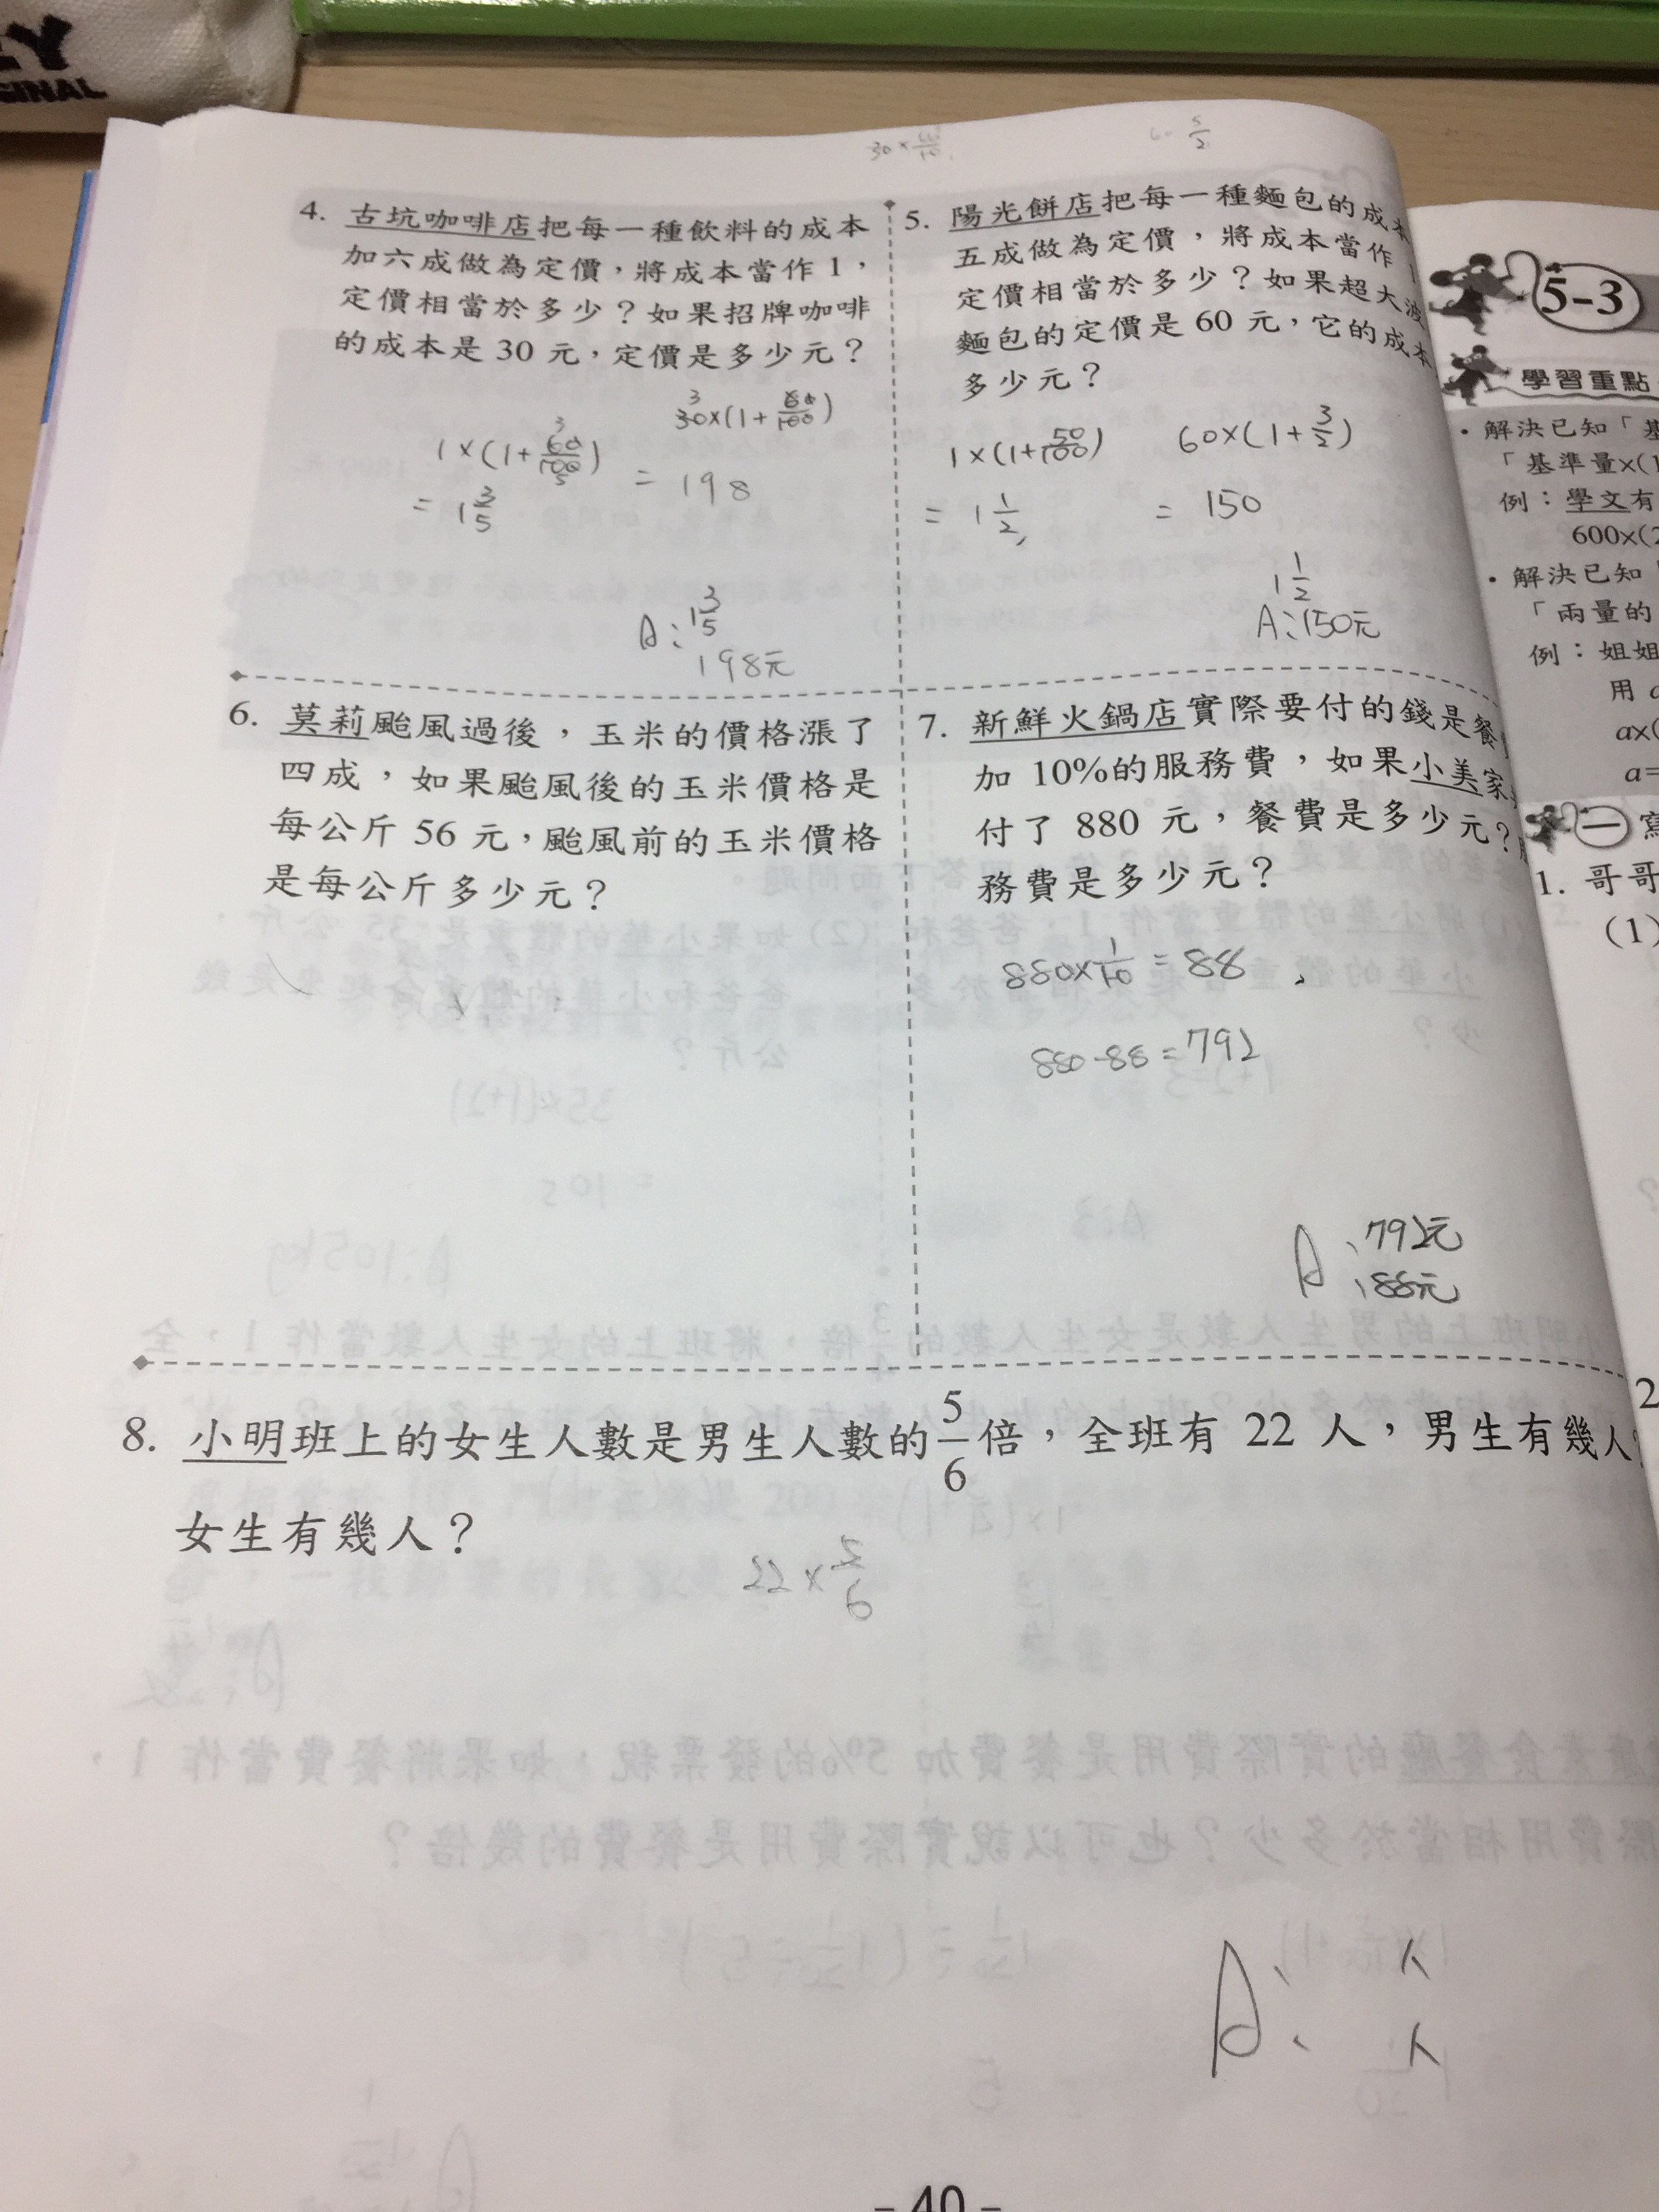 EY
GINAL
30×
5/2
4. 古坑咖啡店把每一種飲料的成本
加六成做為定價，將成本當作 1，
定價相當於多少？如果招牌咖啡
的成本是 30 元，定價是多少元？
1×(1+60/100)
3
5
= 1 3/5
3
30×(1+60/100)
= 198
A: 1 3/5
198元
5. 陽光餅店把每一種麵包的成本
五成做為定價，將成本當作 1
定價相當於多少？如果超大波
麵包的定價是 60 元，它的成本
多少元？
1×(1+50/100)
= 1 1/2
60×(1+3/2)
= 150
1 1/2
A:150元
6. 莫莉颱風過後，玉米的價格漲了
四成，如果颱風後的玉米價格是
每公斤 56 元，颱風前的玉米價格
是每公斤多少元？
7. 新鮮火鍋店實際要付的錢是餐
加 10%的服務費，如果小美家
付了 880 元，餐費是多少元？
務費是多少元？
880×1/10=88
880-88=792
A: 792元
88元
8. 小明班上的女生人數是男生人數的5/6倍，全班有 22 人，男生有幾人？
女生有幾人？
22×5/6
A: 人
人
- 40 -
5-3
學習重點
·解決已知「基
「基準量×(1
例：學文有
600×(2
·解決已知「
「兩量的
例：姐姐
用 a
a×(
a=
一 寫
1. 哥哥
(1)
2